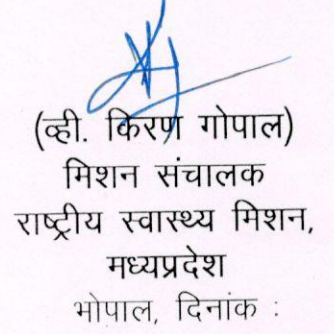 (व्ही. किरण गोपाल)
मिशन संचालक
राष्ट्रीय स्वास्थ्य मिशन,
मध्यप्रदेश
भोपाल, दिनांक :